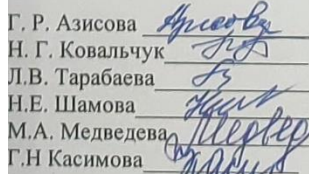 Г. Р. Азисова
Н. Г. Ковальчук
Л.В. Тарабаева
Н.Е. Шамова
М.А. Медведева Медвед
Г.Н Касимова